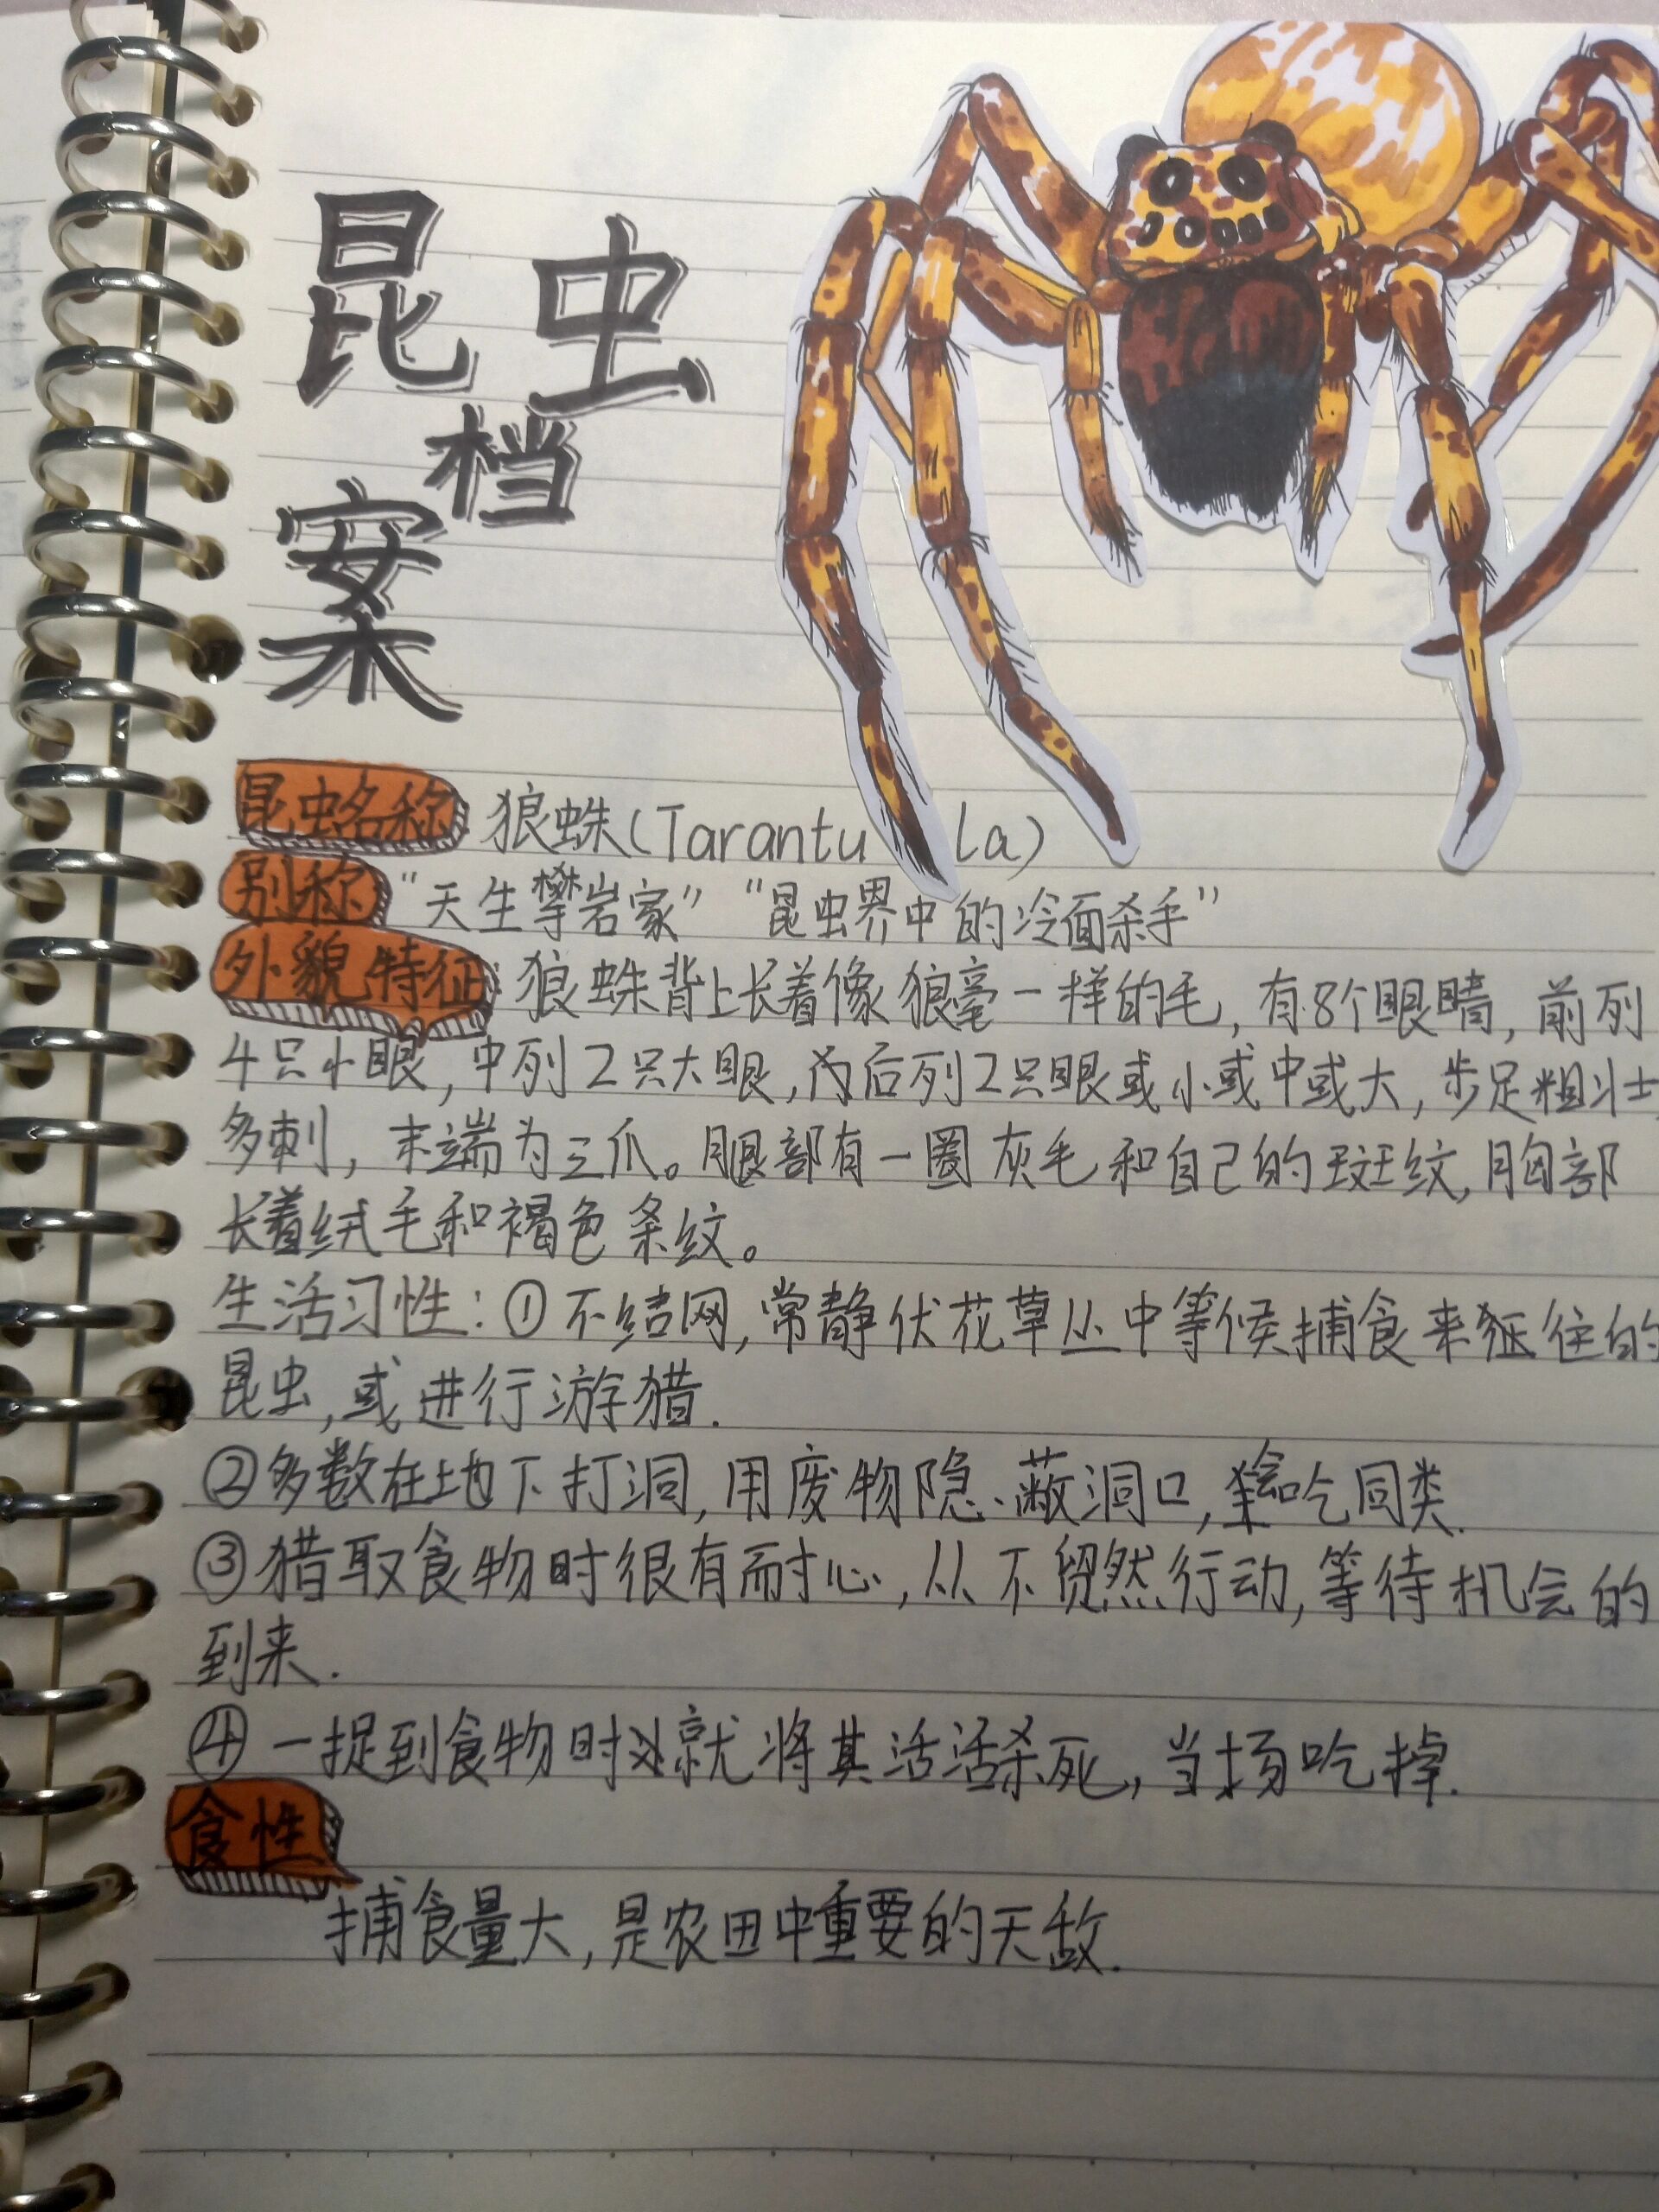 昆虫
档
案
昆虫名称 狼蛛(Tarantula)
别称 "天生攀岩家" "昆虫界中的冷面杀手"
外貌特征: 狼蛛背上长着像狼毫一样的毛,有8个眼睛,前列
4只小眼,中列2只大眼,后列2只眼或小或中或大,步足粗壮
多刺,末端为三爪。腿部有一圈灰毛和自己的斑纹,胸部
长着绒毛和褐色条纹。
生活习性:①不结网,常静伏花草丛中等候捕食来往的
昆虫,或进行游猎.
②多数在地下打洞,用废物隐蔽洞口,会吃同类.
③猎取食物时很有耐心,从不贸然行动,等待机会的
到来.
④一捉到食物时就将其活活杀死,当场吃掉.
食性
捕食量大,是农田中重要的天敌.